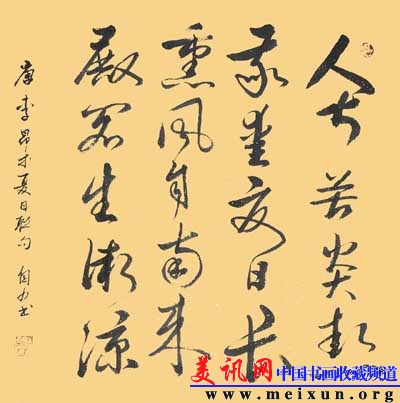 人皆苦炎热
我爱夏日长
熏风自南来
殿阁生微涼
唐李昂等夏日联句 书
美讯网 中国书画收藏频道
www.meixun.org